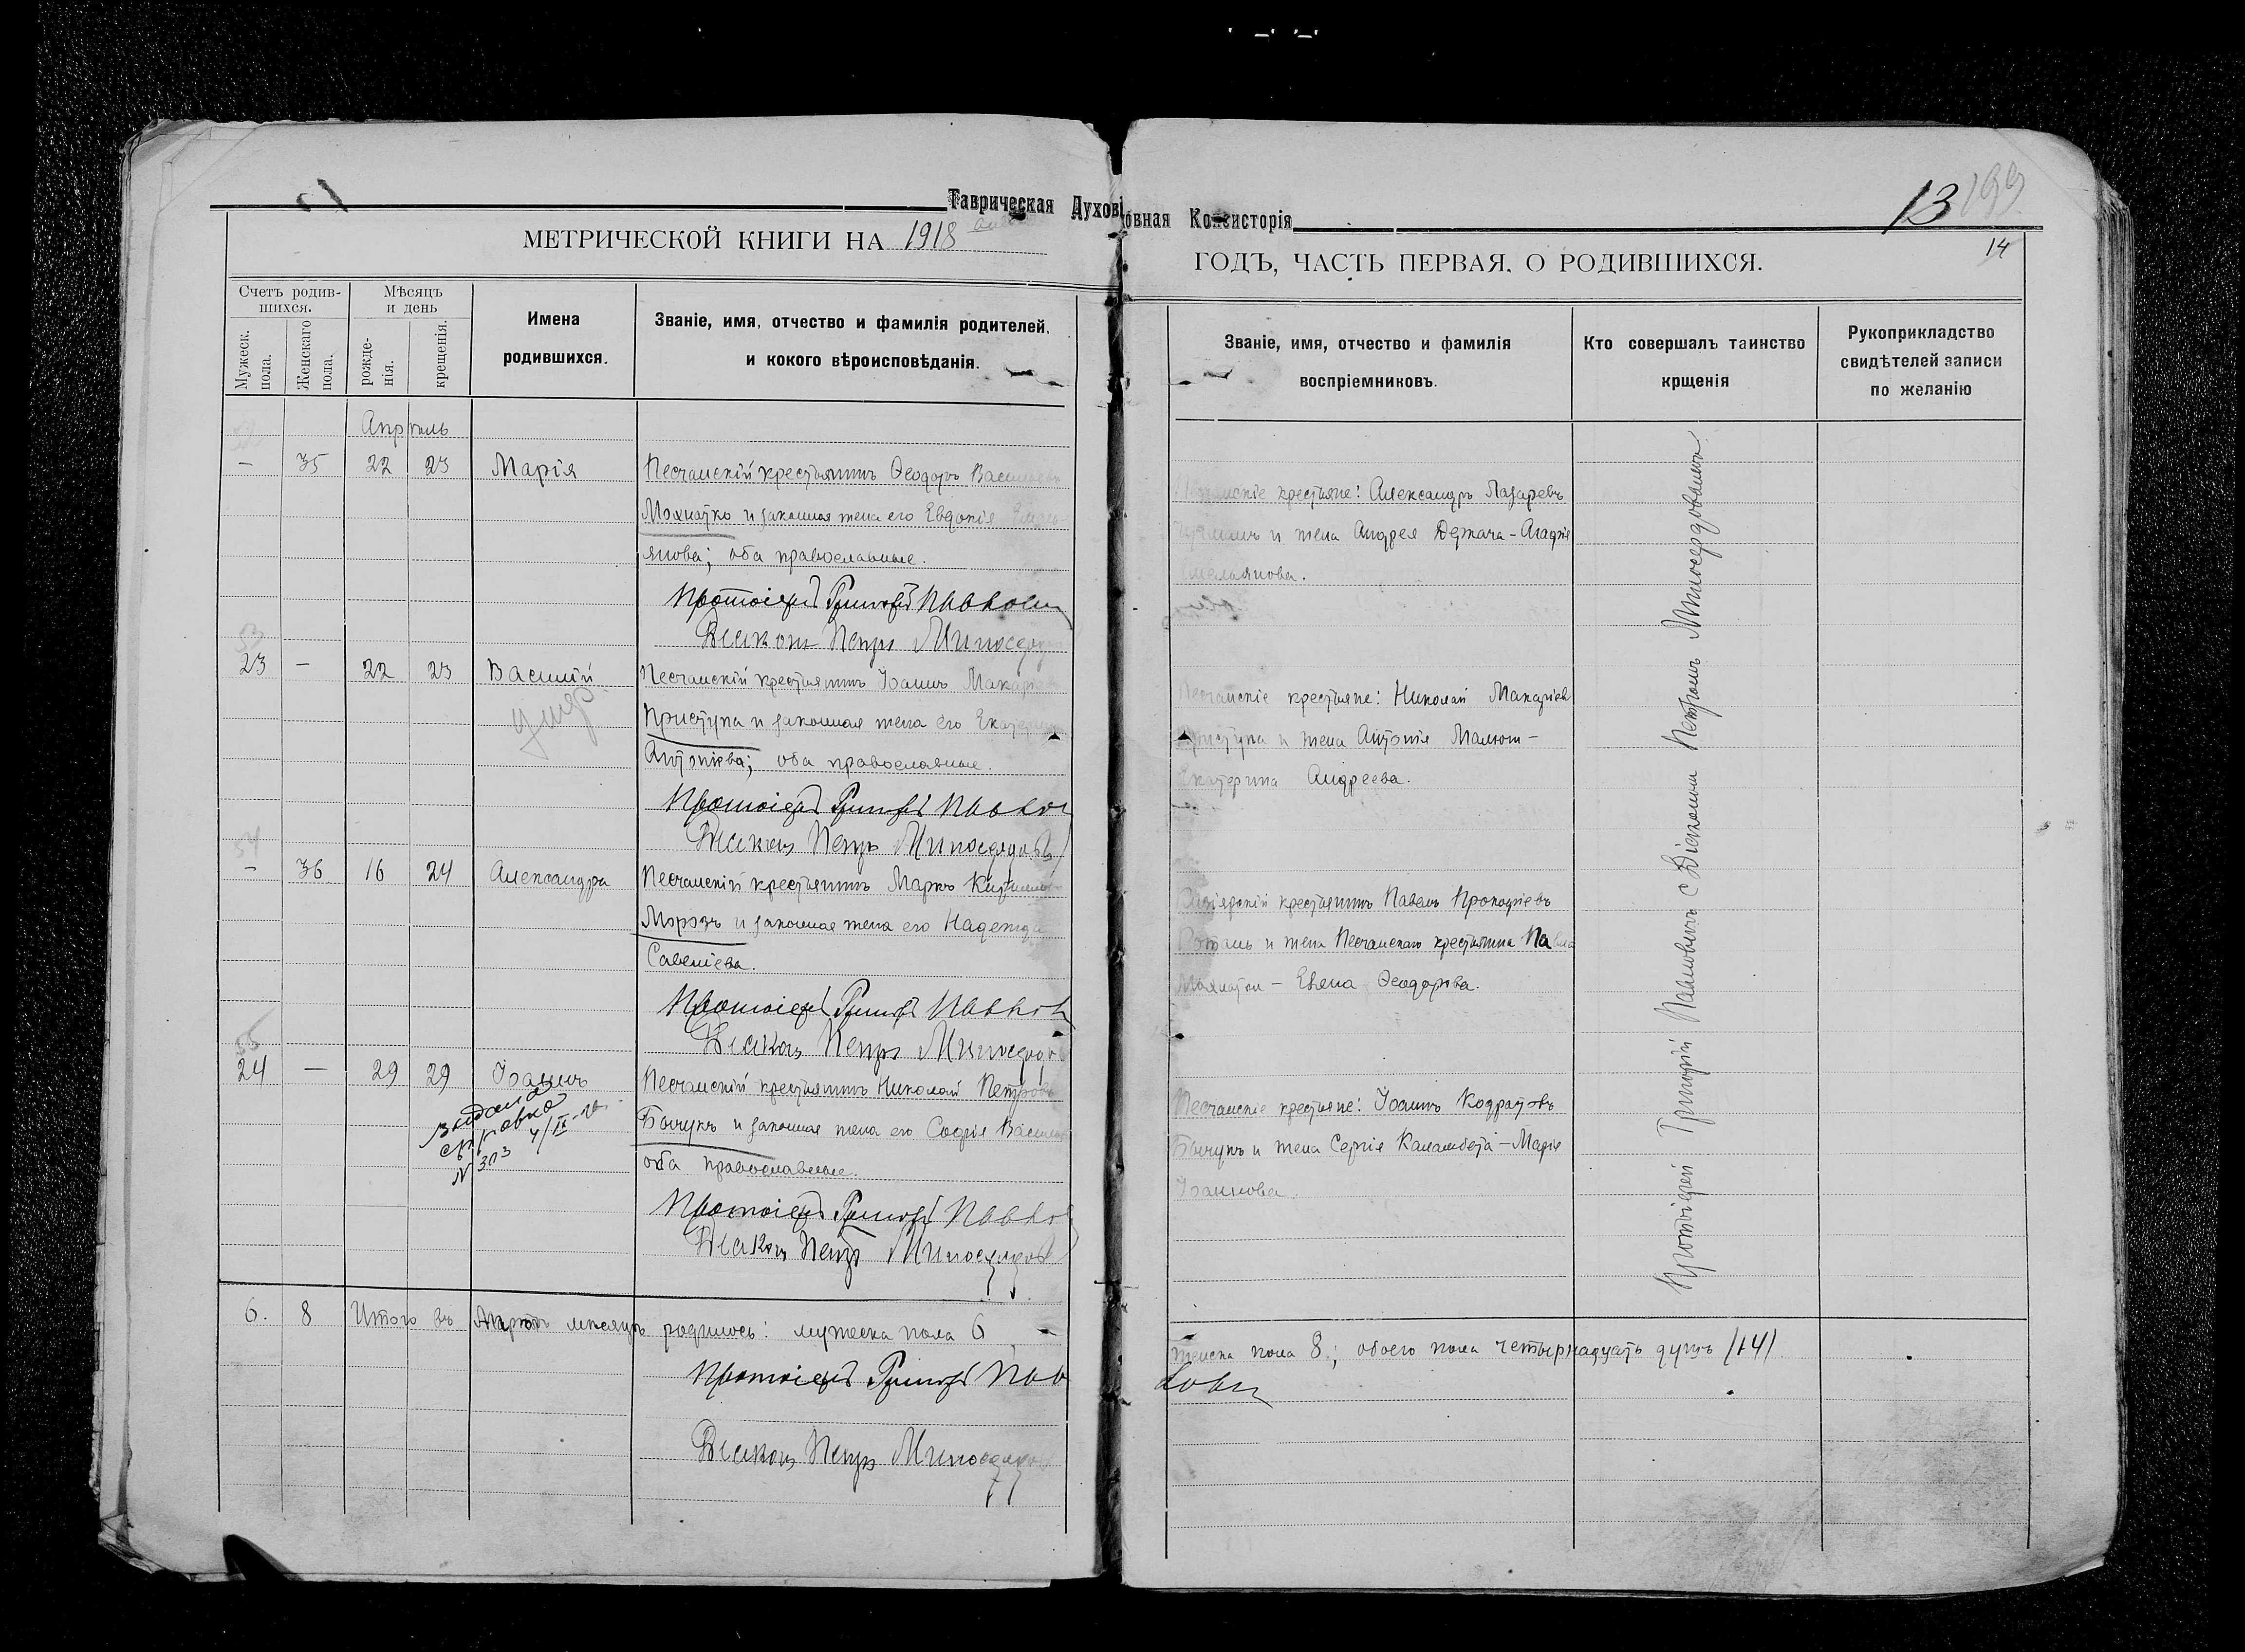 Таврическая Духовная Консисторія
13
199
14
МЕТРИЧЕСКОЙ КНИГИ НА 1918
ГОДЪ, ЧАСТЬ ПЕРВАЯ, О РОДИВШИХСЯ.
Счетъ родившихся.
Мужеск. пола.
Женскаго пола.
Мѣсяцъ и день
рожденія.
крещенія.
Имена родившихся.
Званіе, имя, отчество и фамилія родителей, и кокого вѣроисповѣданія.
Званіе, имя, отчество и фамилія воспріемниковъ.
Кто совершалъ таинство крщенія
Рукоприкладство свидѣтелей записи по желанію
Апрѣль
— 35 22 23 Марія
Песчанскій крестьянинъ Ѳеодоръ
Мохнатко и законная жена его Евдокія
янова; оба православные.
Протоіерей Григорій Павловичъ
Діаконъ Петръ
крестьяне: Александръ Лазаревъ
и жена Андрея Держача - Агафія
53
23 — 22 23 Василій
умер
Песчанскій крестьянинъ Іоаннъ
Приступа и законная жена его
Антоніева; оба православные.
Протоіерей Григорій
Діаконъ Петръ Милосердовъ
Песчанскіе крестьяне: Николай Макаріевъ
Приступа и жена Антонія Малюш-
Екатерина Андреева.
54
— 36 16 24 Александра
Песчанскій крестьянинъ Маркъ
Морозъ и законная жена его Надежда
Савеліева.
Протоіерей Григорій
Діаконъ Петръ
крестьянинъ Павелъ Прокофіевъ
и жена Песчанскаго крестьянина Павла
Елена Ѳеодорова.
24 — 29 29 Іоаннъ
Выдана
справка
N 303 4/IX
Песчанскій крестьянинъ Николай Петровъ
Бончукъ и законная жена его Софія
оба православные.
Протоіерей Григорій
Діаконъ Петръ Милосердовъ
Песчанскіе крестьяне: Іоаннъ Кодратовъ
Бончукъ и жена Сергія Каламбета - Марія
Іоаннова.
Протоіерей Григорій Павловичъ с Діакономъ Петромъ Милосердовымъ
6. 8 Итого въ мѣсяцѣ родилось: мужеска пола 6
женска пола 8; обоего пола четырнадцать душъ (14)
Протоіерей Григорій Павловичъ
Діаконъ Петръ